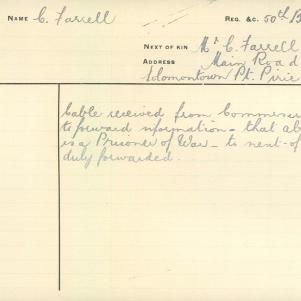 NAME C. Farrell
REG. &C. 50th B
NEXT OF KIN Mr C. Farrell
ADDRESS Main Road
Solomontown Pt. Pirie
Cable received from Commissi
to forward information - that ab
is a Prisoner of War - to next-of
duly forwarded.